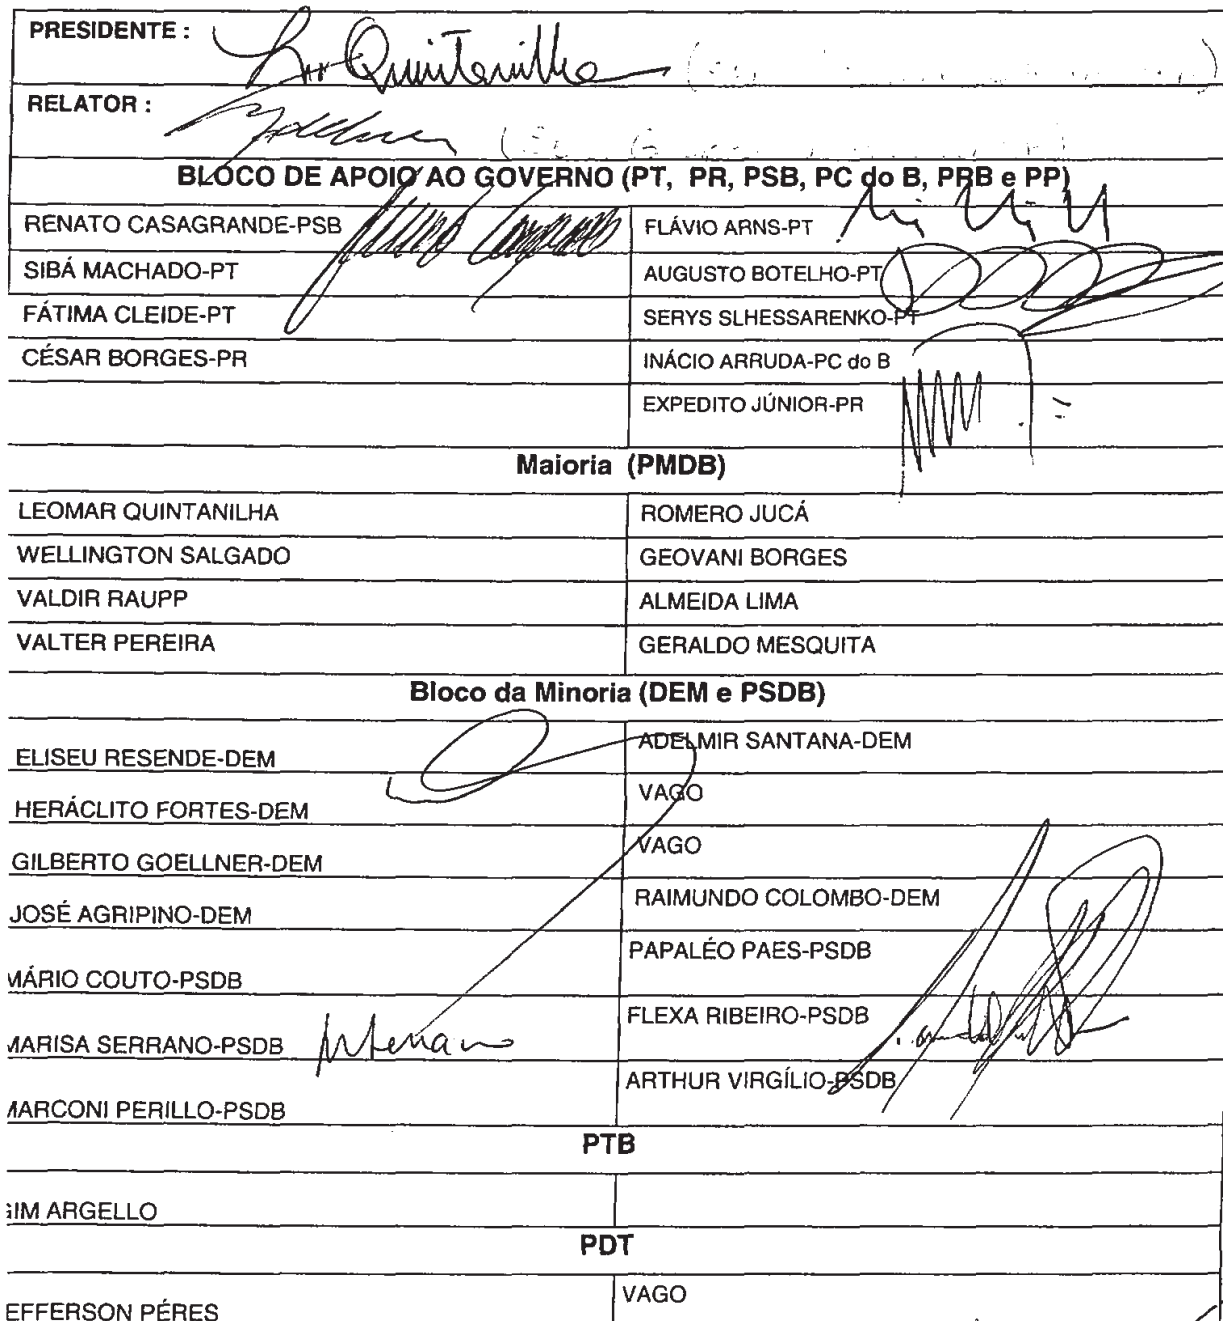 PRESIDENTE : Quintanilha
RELATOR :
BLOCO DE APOIO AO GOVERNO (PT, PR, PSB, PC do B, PRB e PP)
RENATO CASAGRANDE-PSB FLÁVIO ARNS-PT
SIBÁ MACHADO-PT AUGUSTO BOTELHO-PT
FÁTIMA CLEIDE-PT SERYS SLHESSARENKO-PT
CÉSAR BORGES-PR INÁCIO ARRUDA-PC do B
EXPEDITO JÚNIOR-PR
Maioria (PMDB)
LEOMAR QUINTANILHA ROMERO JUCÁ
WELLINGTON SALGADO GEOVANI BORGES
VALDIR RAUPP ALMEIDA LIMA
VALTER PEREIRA GERALDO MESQUITA
Bloco da Minoria (DEM e PSDB)
ELISEU RESENDE-DEM ADELMIR SANTANA-DEM
HERÁCLITO FORTES-DEM VAGO
GILBERTO GOELLNER-DEM VAGO
JOSÉ AGRIPINO-DEM RAIMUNDO COLOMBO-DEM
MÁRIO COUTO-PSDB PAPALÉO PAES-PSDB
MARISA SERRANO-PSDB FLEXA RIBEIRO-PSDB
MARCONI PERILLO-PSDB ARTHUR VIRGÍLIO-PSDB
PTB
GIM ARGELLO
PDT
EFFERSON PÉRES VAGO